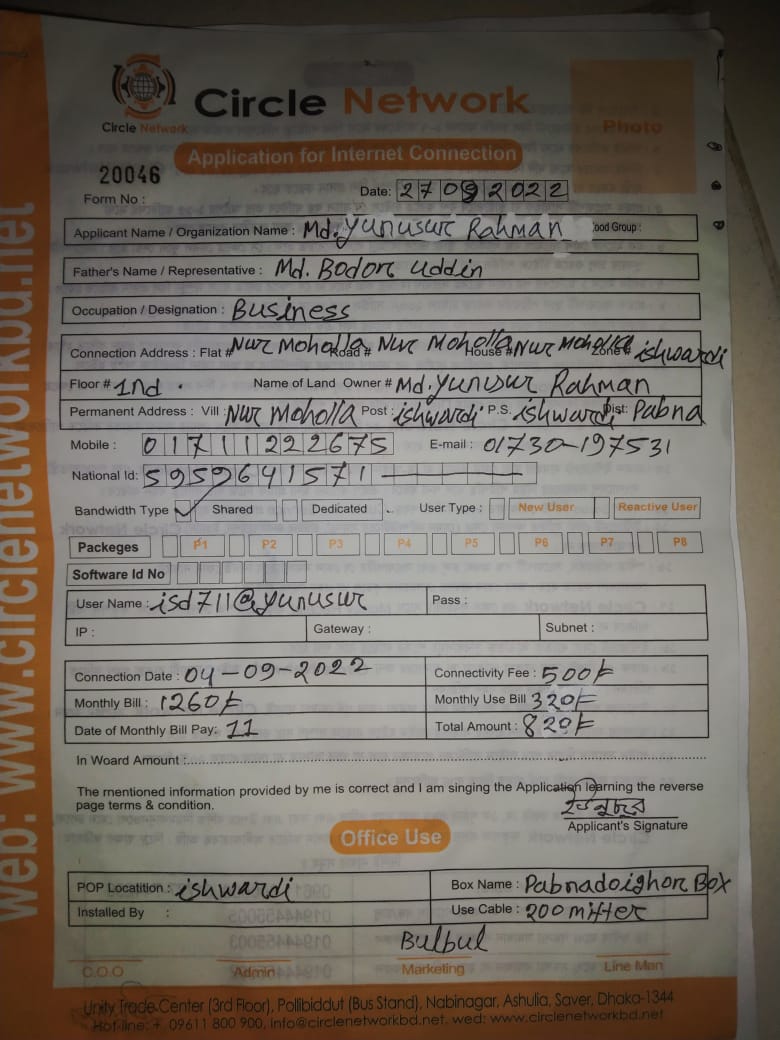 Circle Network
Circle Network
Photo
Application for Internet Connection
20046
Form No :
Date: 27092022
Applicant Name / Organization Name : Md. Yunusur Rahman ood Group :
Father's Name / Representative : Md. Bodor Uddin
Occupation / Designation : Business
Connection Address : Flat # Nur Moholla Road # Nur Moholla House # Nur Moholla Zone # ishwardi
Floor # 1nd . Name of Land Owner # Md. Yunusur Rahman
Permanent Address : Vill : Nur Moholla Post : ishwardi P.S. ishwardi Dist: Pabna
Mobile : 01711222675 E-mail : 01730-197531
National Id: 5959641571
Bandwidth Type ✓ Shared Dedicated User Type : New User Reactive User
Packeges P1 P2 P3 P4 P5 P6 P7 P8
Software Id No
User Name : isd711@yunusur Pass :
IP : Gateway : Subnet :
Connection Date : 04-09-2022 Connectivity Fee : 500/-
Monthly Bill : 1260/- Monthly Use Bill 320/-
Date of Monthly Bill Pay: 11 Total Amount : 820/-
In Woard Amount :
The mentioned information provided by me is correct and I am singing the Application learning the reverse
page terms & condition.
Applicant's Signature
Office Use
POP Locatition : ishwardi Box Name : Pabnadoighor Box
Installed By : Use Cable : 200 mitter
Bulbul
C.O.O Admin Marketing Line Man
Unity Trade Center (3rd Floor), Pollibiddut (Bus Stand), Nabinagar, Ashulia, Saver, Dhaka-1344
Hot-line: + 09611 800 900, info@circlenetworkbd.net. wed: www.circlenetworkbd.net
web: www.circlenetworkbd.net